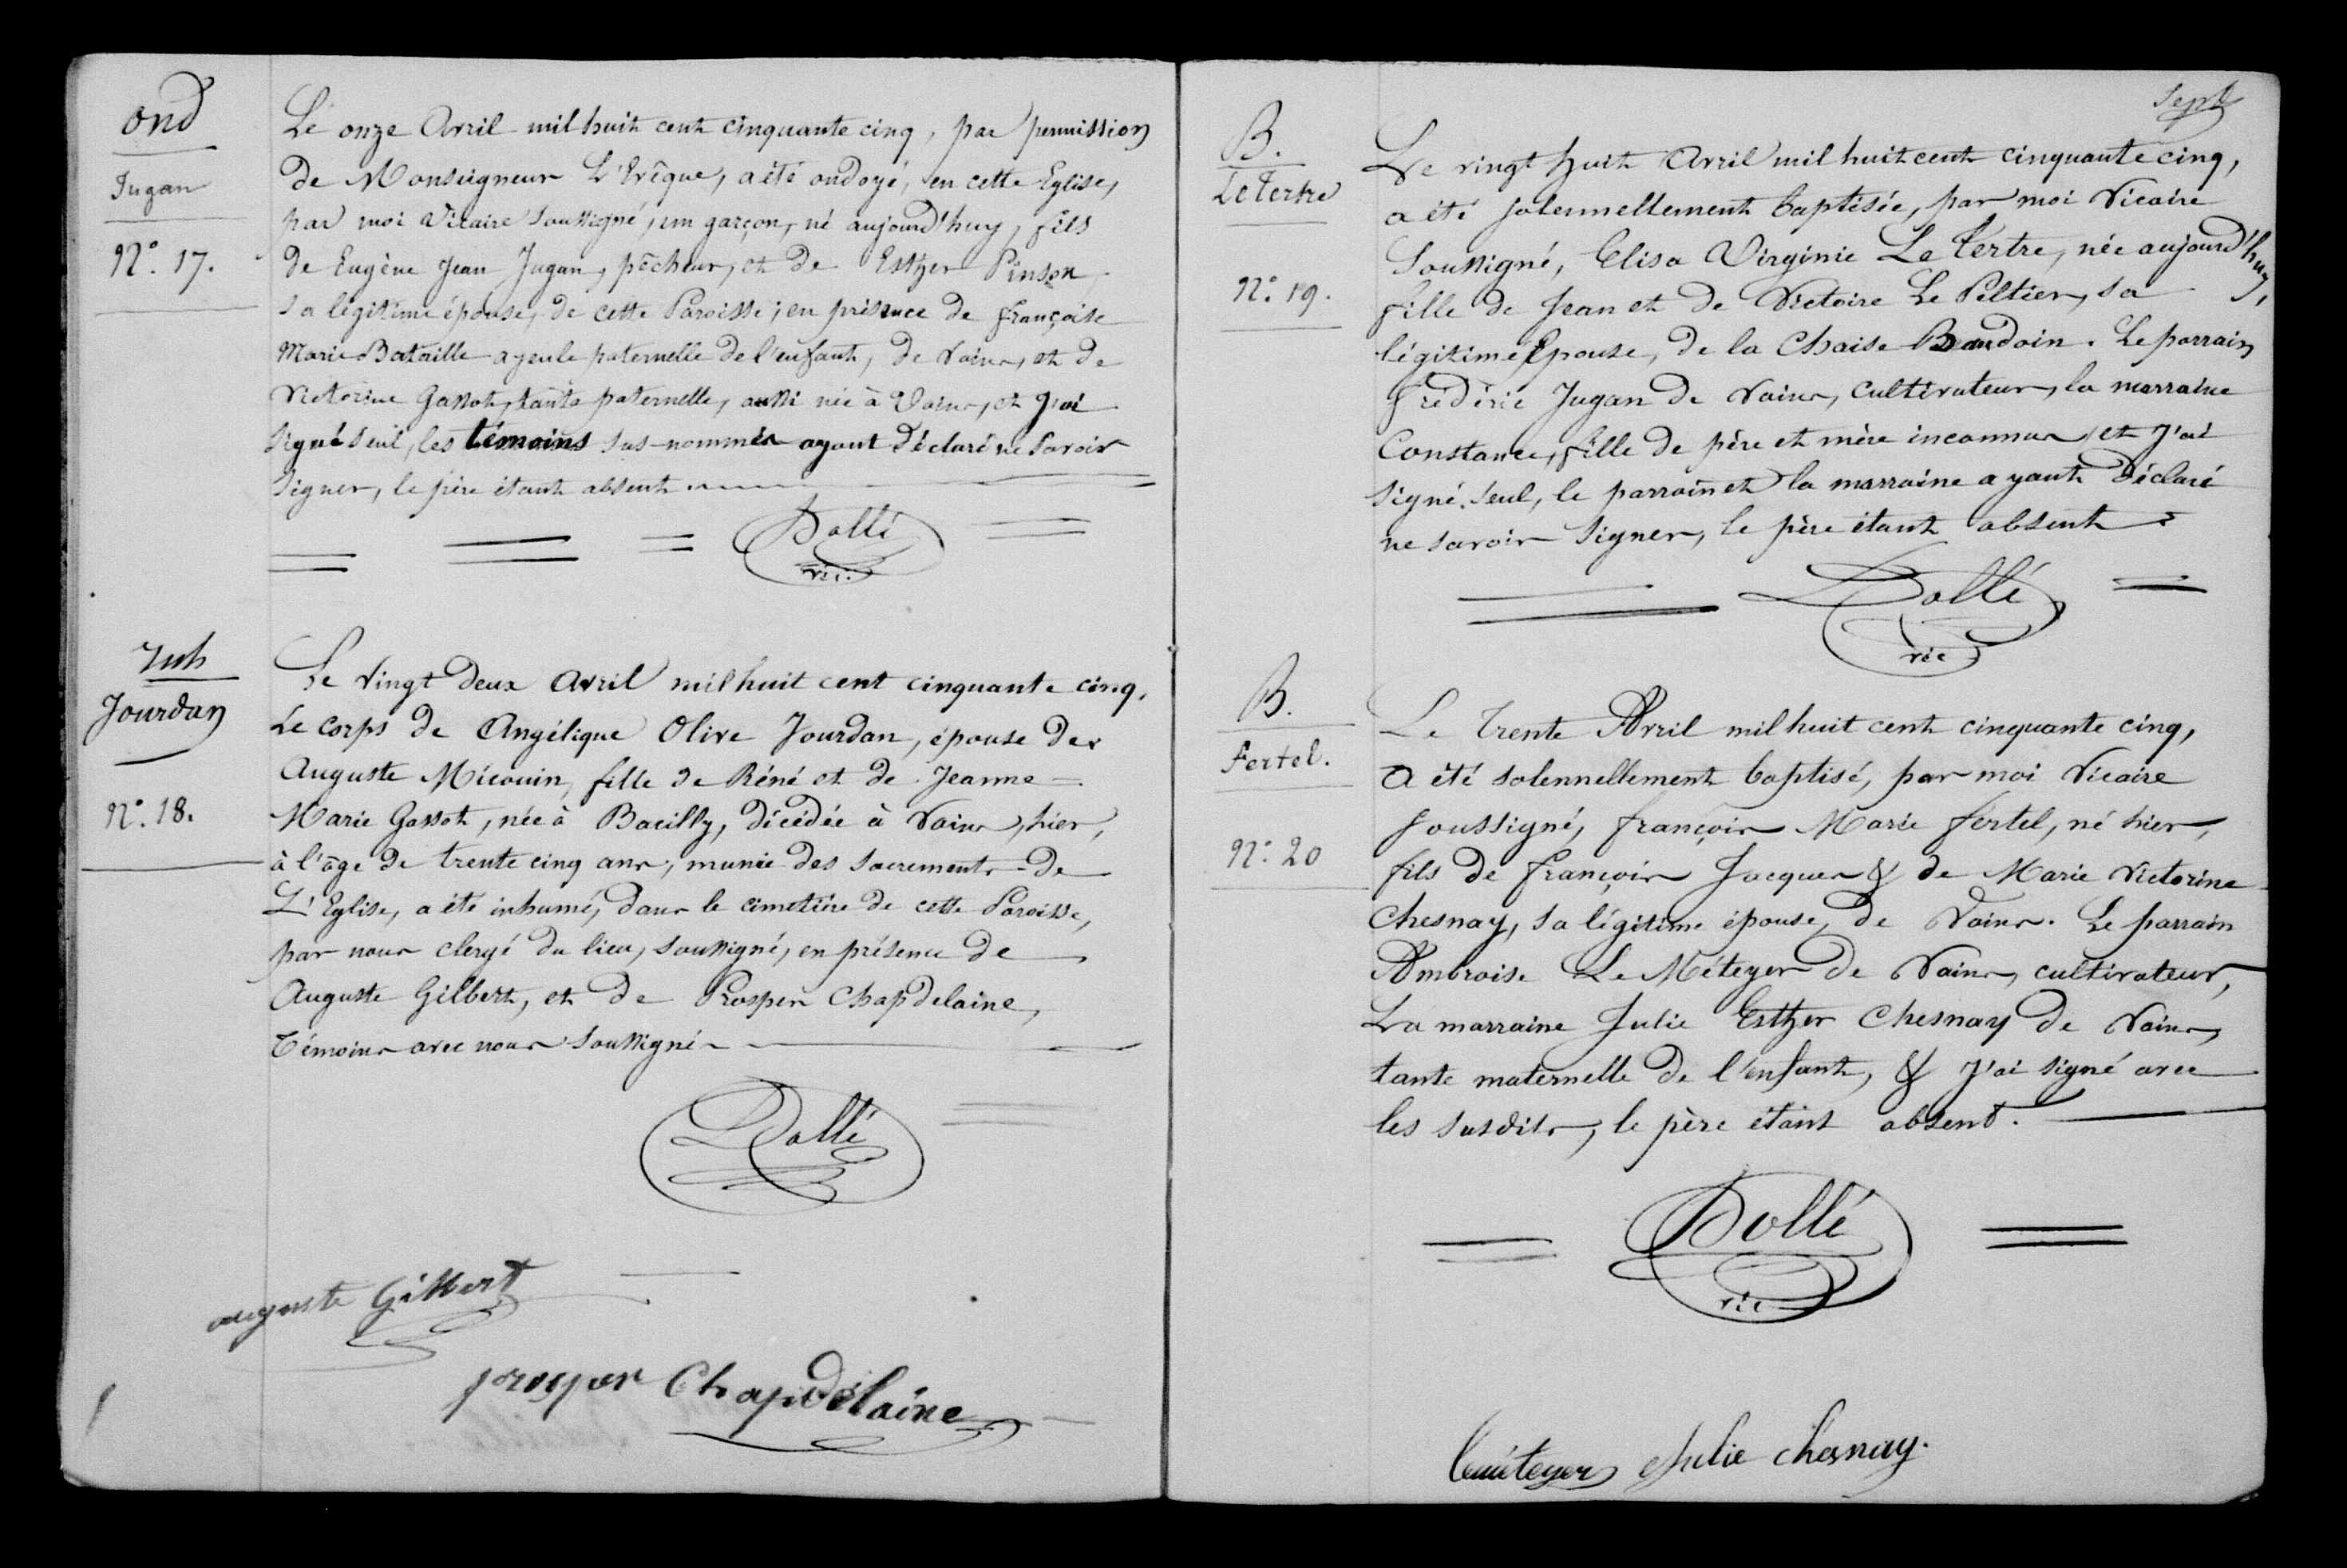 ond
Jugan
N.° 17.
Le onze Avril mil huit cent cinquante cinq, par permission
de Monseigneur L'Evêque, a été ondoyé, en cette Eglise,
par moi Vicaire soussigné, un garçon, né aujourd'huy, fils
de Eugène Jean Jugan, pêcheur, et de Esther Pinson
sa légitime épouse, de cette Paroisse; en présence de françoise
Marie Bataille ayeule paternelle de l'enfant, de Vains, et de
Victorine Gassot, tante paternelle, aussi née à Vains, et j'ai
signé seul, les témoins sus-nommés ayant déclaré ne savoir
signer, le père étant absent.
Dallé
vic.
Inh
Jourdan
N.° 18.
Le vingt deux Avril mil huit cent cinquante cinq.
Le corps de Angélique Olive Jourdan, épouse de
Auguste Micouin, fille de Réné et de Jeanne
Marie Gassot, née à Bacilly, décédée à Vains, hier,
à l'âge de trente cinq ans, munie des sacrements de
L'Eglise, a été inhumé, dans le cimetière de cette Paroisse,
par nous clergé du lieu, soussigné, en présence de
Auguste Gilbert, et de Prosper Chapdelaine,
Témoins avec nous soussigné
Dallé
auguste Gilbert
prosper Chapdelaine
Sept
B.
Le Tertre
N.° 19.
Le vingt huit Avril mil huit cent cinquante cinq,
a été solennellement baptisée, par moi Vicaire
Soussigné, Elisa Virginie Le Tertre, née aujourd'huy,
fille de Jean et de Victoire Le Peltier, sa
légitime Epouse, de la Chaise Baudoin. Le parrain
frédéric Jugan de Vains, cultivateur, la marraine
Constance, fille de père et mère inconnus, et J'ai
signé seul, le parrain et la marraine ayant déclaré
ne savoir signer, le père étant absent
Dallé
vic
B.
Fertel.
N.° 20
Le trente Avril mil huit cent cinquante cinq,
a été solennellement baptisé, par moi Vicaire
soussigné, françois Marie fertel, né hier,
fils de françois Jacques & de Marie Victorine
Chesnay, sa légitime épouse, de Vains. Le parrain
Ambroise Le Méteyer de Vains, cultivateur,
La marraine Julie Esther Chesnay de Vains,
tante maternelle de l'enfant, & J'ai signé avec
les susdits, le père étant absent.
Dallé
vic
Leméteyer Julie chesnay.